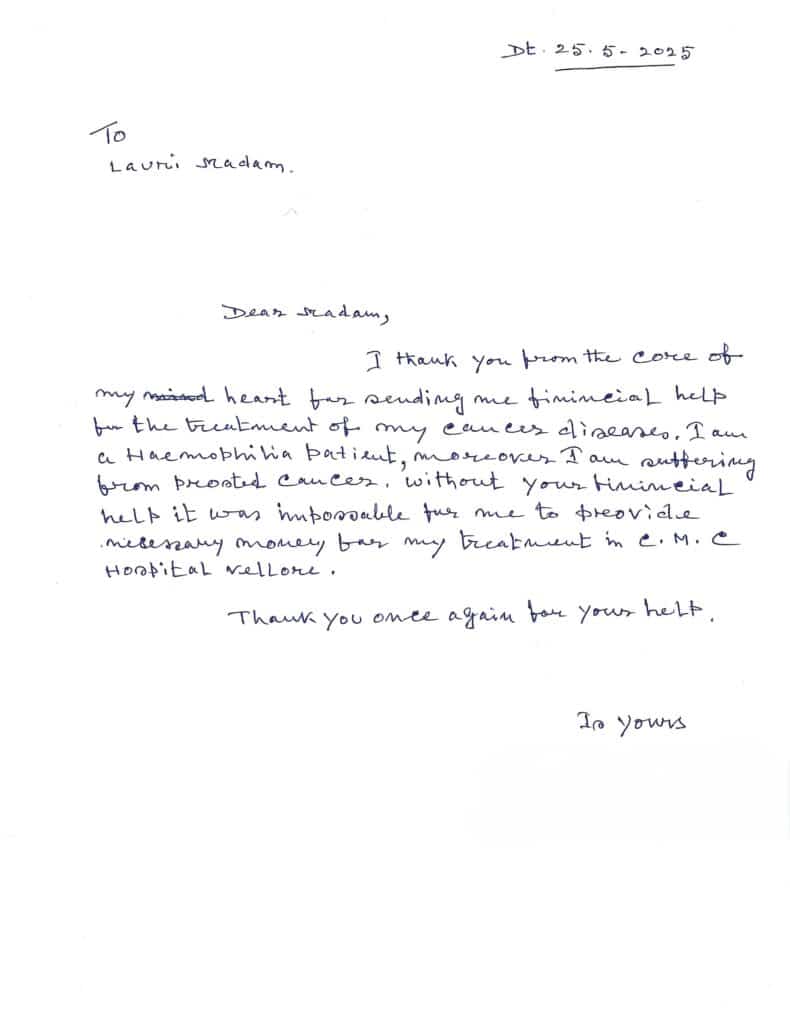 Dt. 25.5-2025
To
Laurri Madam.
Dear Madam,
I thank you from the core of
my mind heart for sending me finincial help
for the treatment of my cancer diseases. I am
a Haemophilia patient, moreover I am suffering
from prosted cancer. without your finincial
help it was impossable for me to preovide
necessary money for my treatment in C.M.C
Hospital vellore.
Thank you once again for your help.
Is yours